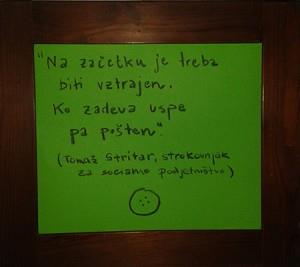 "Na začetku je treba
biti vztrajen.
Ko zadeva uspe
pa pošten".
(Tomaž Stritar, strokovnjak
za socialno podjetništvo)